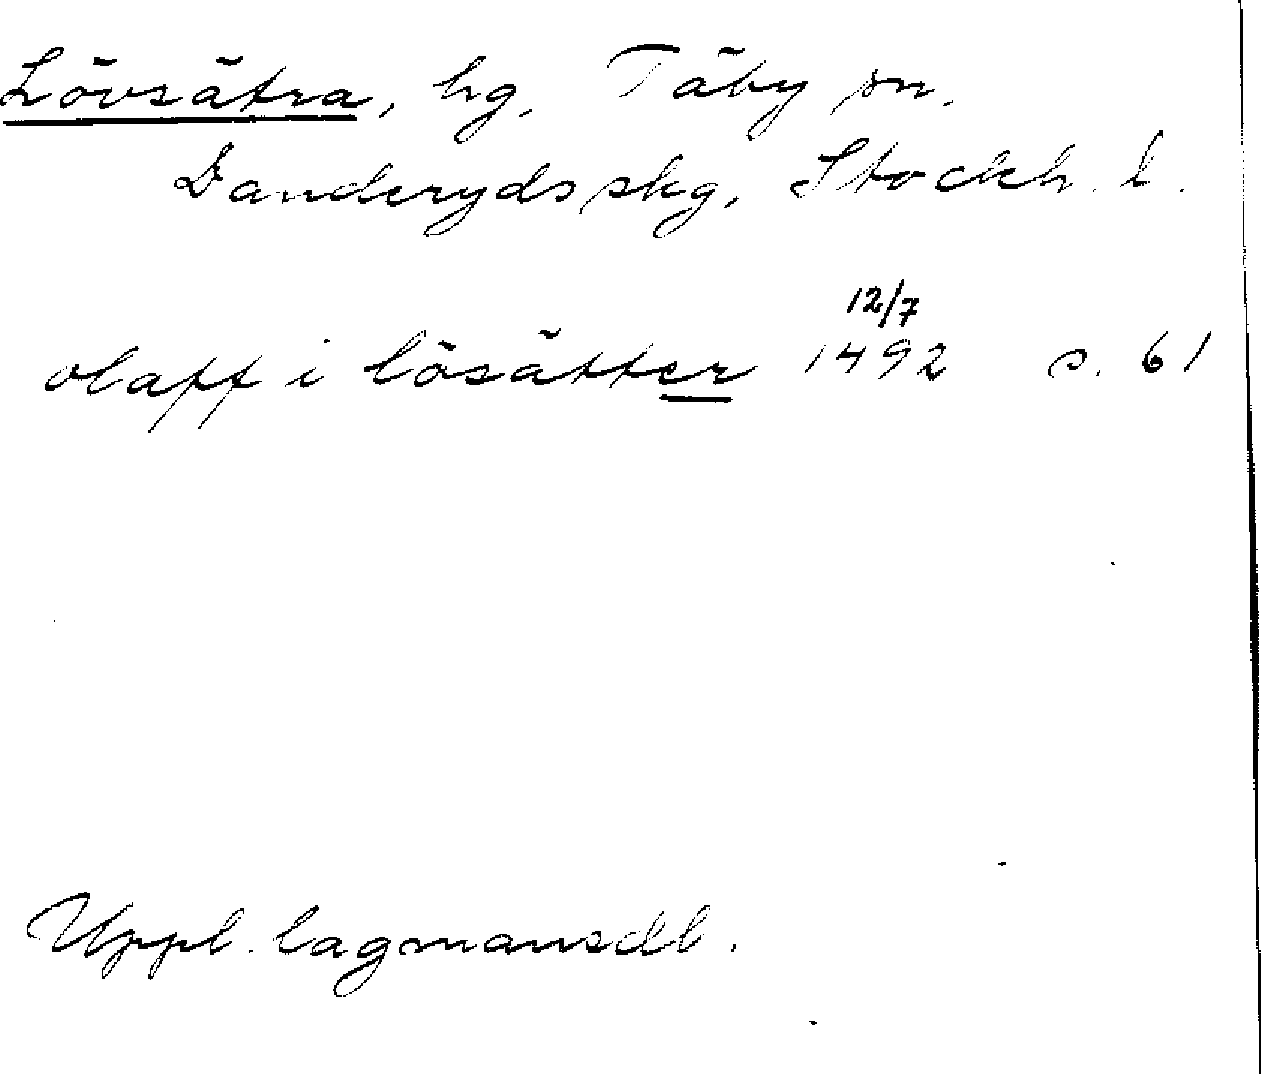 Lövsätra, hg, Täby sn.
Danderyds skg, Stockh. l.
olaff i lösätter 12/7 1492 s. 61
Uppl. lagmansdb.